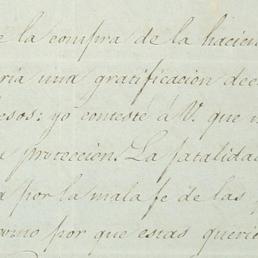 la compra de la hacien
ria una gratificacion de
esos: yo contesté á V. que
proteccion. La fatalida
por la mala fe de las
como por que estas queri